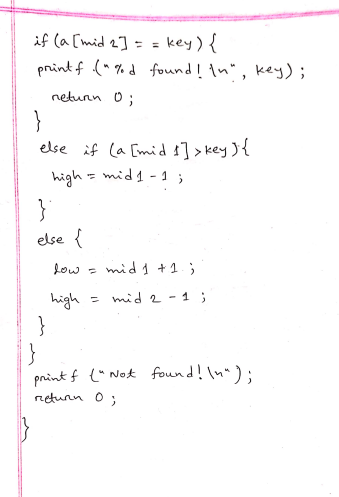 if (a[mid 2] = = key) {
printf ("%d found! \n", key);
return 0;
}
else if (a [mid 1] > key) {
high = mid 1 - 1 ;
}
else {
low = mid 1 + 1 ;
high = mid 2 - 1 ;
}
}
printf ("Not found! \n");
return 0 ;
}